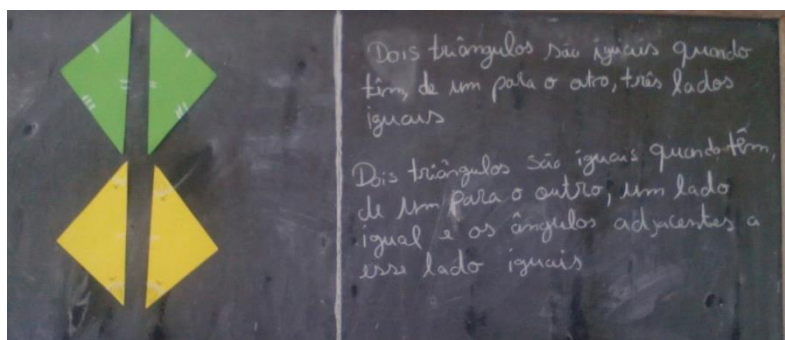 Dois triângulos são iguais quando
têm, de um para o outro, três lados
iguais
Dois triângulos são iguais quando têm,
de um para o outro, um lado
igual e os ângulos adjacentes a
esse lado iguais